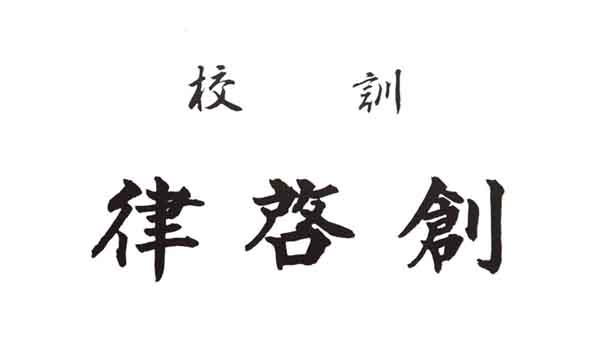 校訓
律啓創